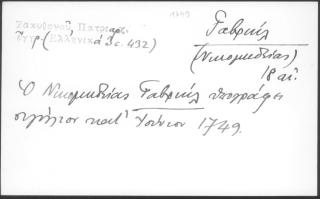 Ζακυθηνοῦ, Πατριαρ.
ἔγγρ. (Ἑλληνικά 3 σ. 432)
1749
Γαβριήλ
(Νικομηδείας)
18 αἰ.
Ὁ Νικομηδείας Γαβριήλ ὑπογράφει
σιγίλλιον κατ' Ἰούνιον 1749.